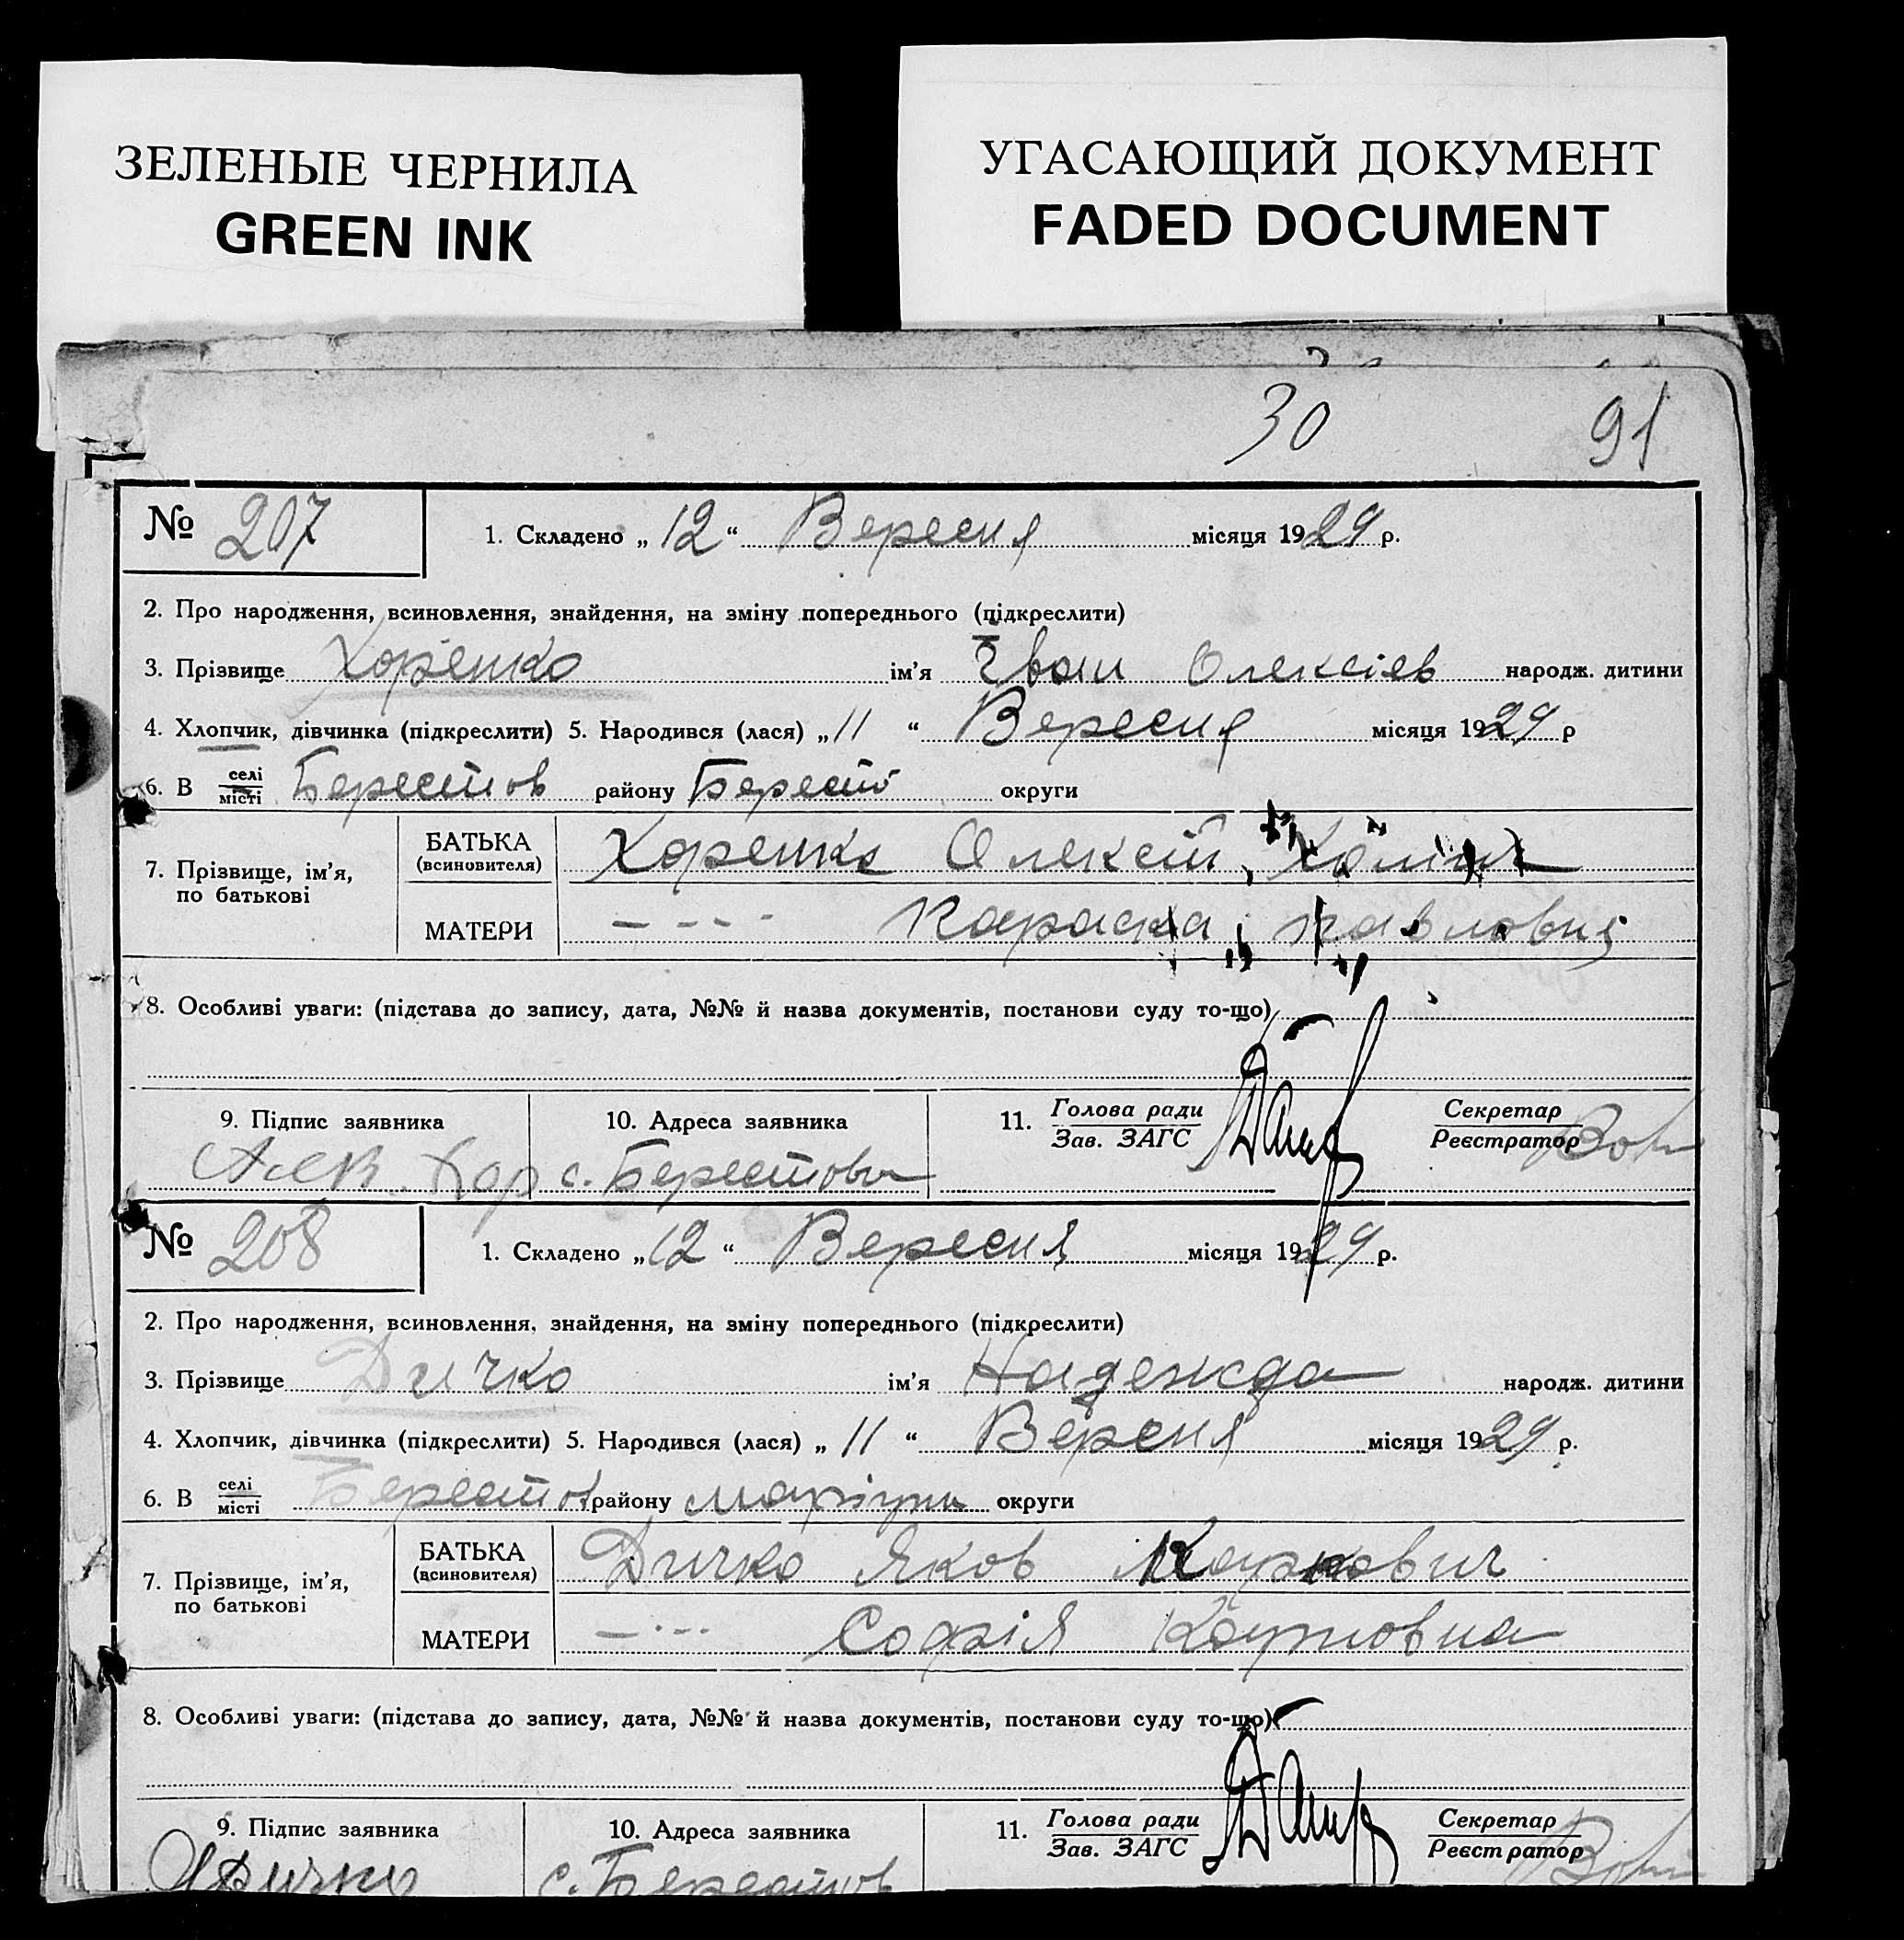 ЗЕЛЕНЫЕ ЧЕРНИЛА
GREEN INK
УГАСАЮЩИЙ ДОКУМЕНТ
FADED DOCUMENT
30 91
№ 207 1. Складено „12“ Вересня місяця 1929 р.
2. Про народження, всиновлення, знайдення, на зміну попереднього (підкреслити)
3. Прізвище Харенко ім’я Іван Олексієв народж. дитини
4. Хлопчик, дівчинка (підкреслити) 5. Народився (лася) „11“ Вересня місяця 1929 р
6. В селі/місті Берестов району Берестів округи
7. Прізвище, ім’я, по батькові
БАТЬКА (всиновителя) Харенко Олексій
МАТЕРИ - - - - Павловна
8. Особливі уваги: (підстава до запису, дата, №№ й назва документів, постанови суду то-що)
9. Підпис заявника 10. Адреса заявника 11. Голова ради/Зав. ЗАГС Секретар/Реєстратор
Хар с. Берестова
№ 208 1. Складено „12“ Вересня місяця 1929 р.
2. Про народження, всиновлення, знайдення, на зміну попереднього (підкреслити)
3. Прізвище Дичко ім’я Надежда народж. дитини
4. Хлопчик, дівчинка (підкреслити) 5. Народився (лася) „11“ Версня місяця 1929 р.
6. В селі/місті Берестов району Маріуп округи
7. Прізвище, ім’я, по батькові
БАТЬКА (всиновителя) Дичко Яков Маркович
МАТЕРИ - - - - Софія Карповна
8. Особливі уваги: (підстава до запису, дата, №№ й назва документів, постанови суду то-що)
9. Підпис заявника 10. Адреса заявника 11. Голова ради/Зав. ЗАГС Секретар/Реєстратор
Дичко с. Берестов